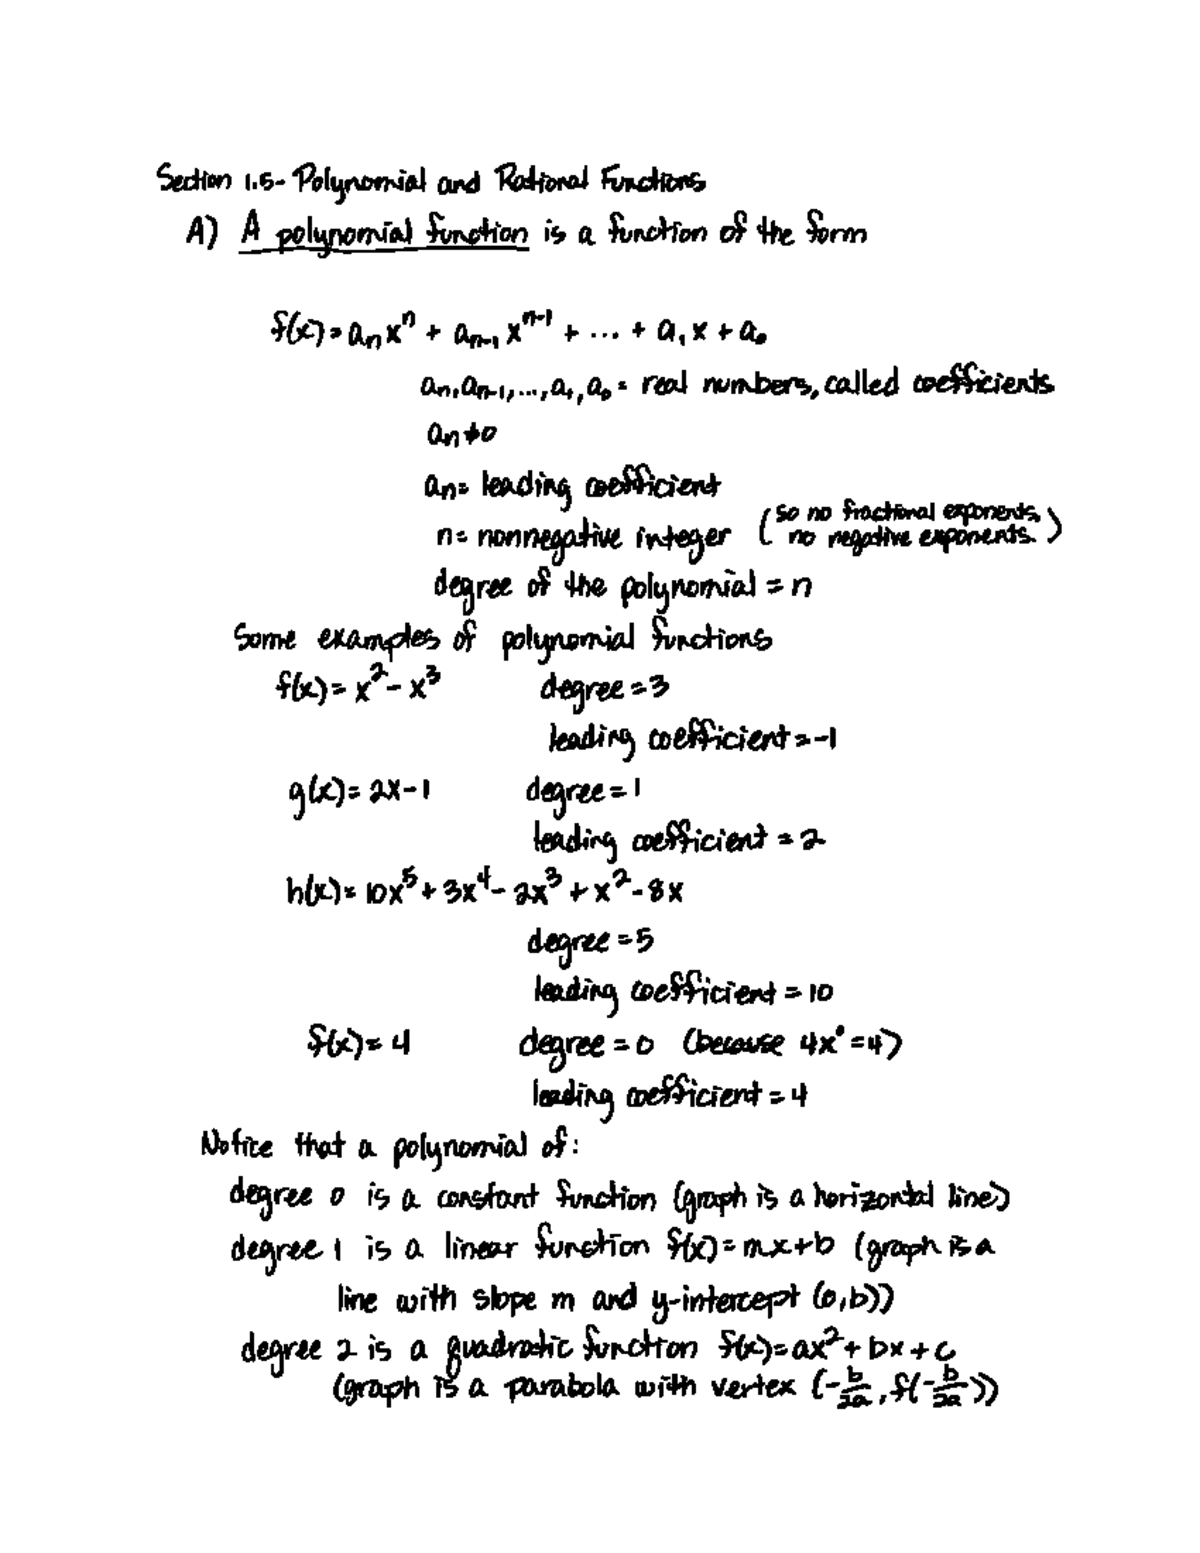 Section 1.5- Polynomial and Rational Functions
A) A polynomial function is a function of the form
f(x)= aₙxⁿ + aₙ₋₁xⁿ⁻¹ + ... + a₁x + a₀
aₙ, aₙ₋₁, ..., a₁, a₀ = real numbers, called coefficients
aₙ ≠ 0
aₙ = leading coefficient
n = nonnegative integer (so no fractional exponents, no negative exponents.)
degree of the polynomial = n
Some examples of polynomial functions
f(x) = x² - x³ degree = 3
leading coefficient = -1
g(x) = 2x-1 degree = 1
leading coefficient = 2
h(x) = 10x⁵ + 3x⁴ - 2x³ + x² - 8x
degree = 5
leading coefficient = 10
f(x) = 4 degree = 0 (because 4x⁰ = 4)
leading coefficient = 4
Notice that a polynomial of:
degree 0 is a constant function (graph is a horizontal line)
degree 1 is a linear function f(x) = mx+b (graph is a
line with slope m and y-intercept (0,b))
degree 2 is a quadratic function f(x) = ax² + bx + c
(graph is a parabola with vertex (-b/2a, f(-b/2a))